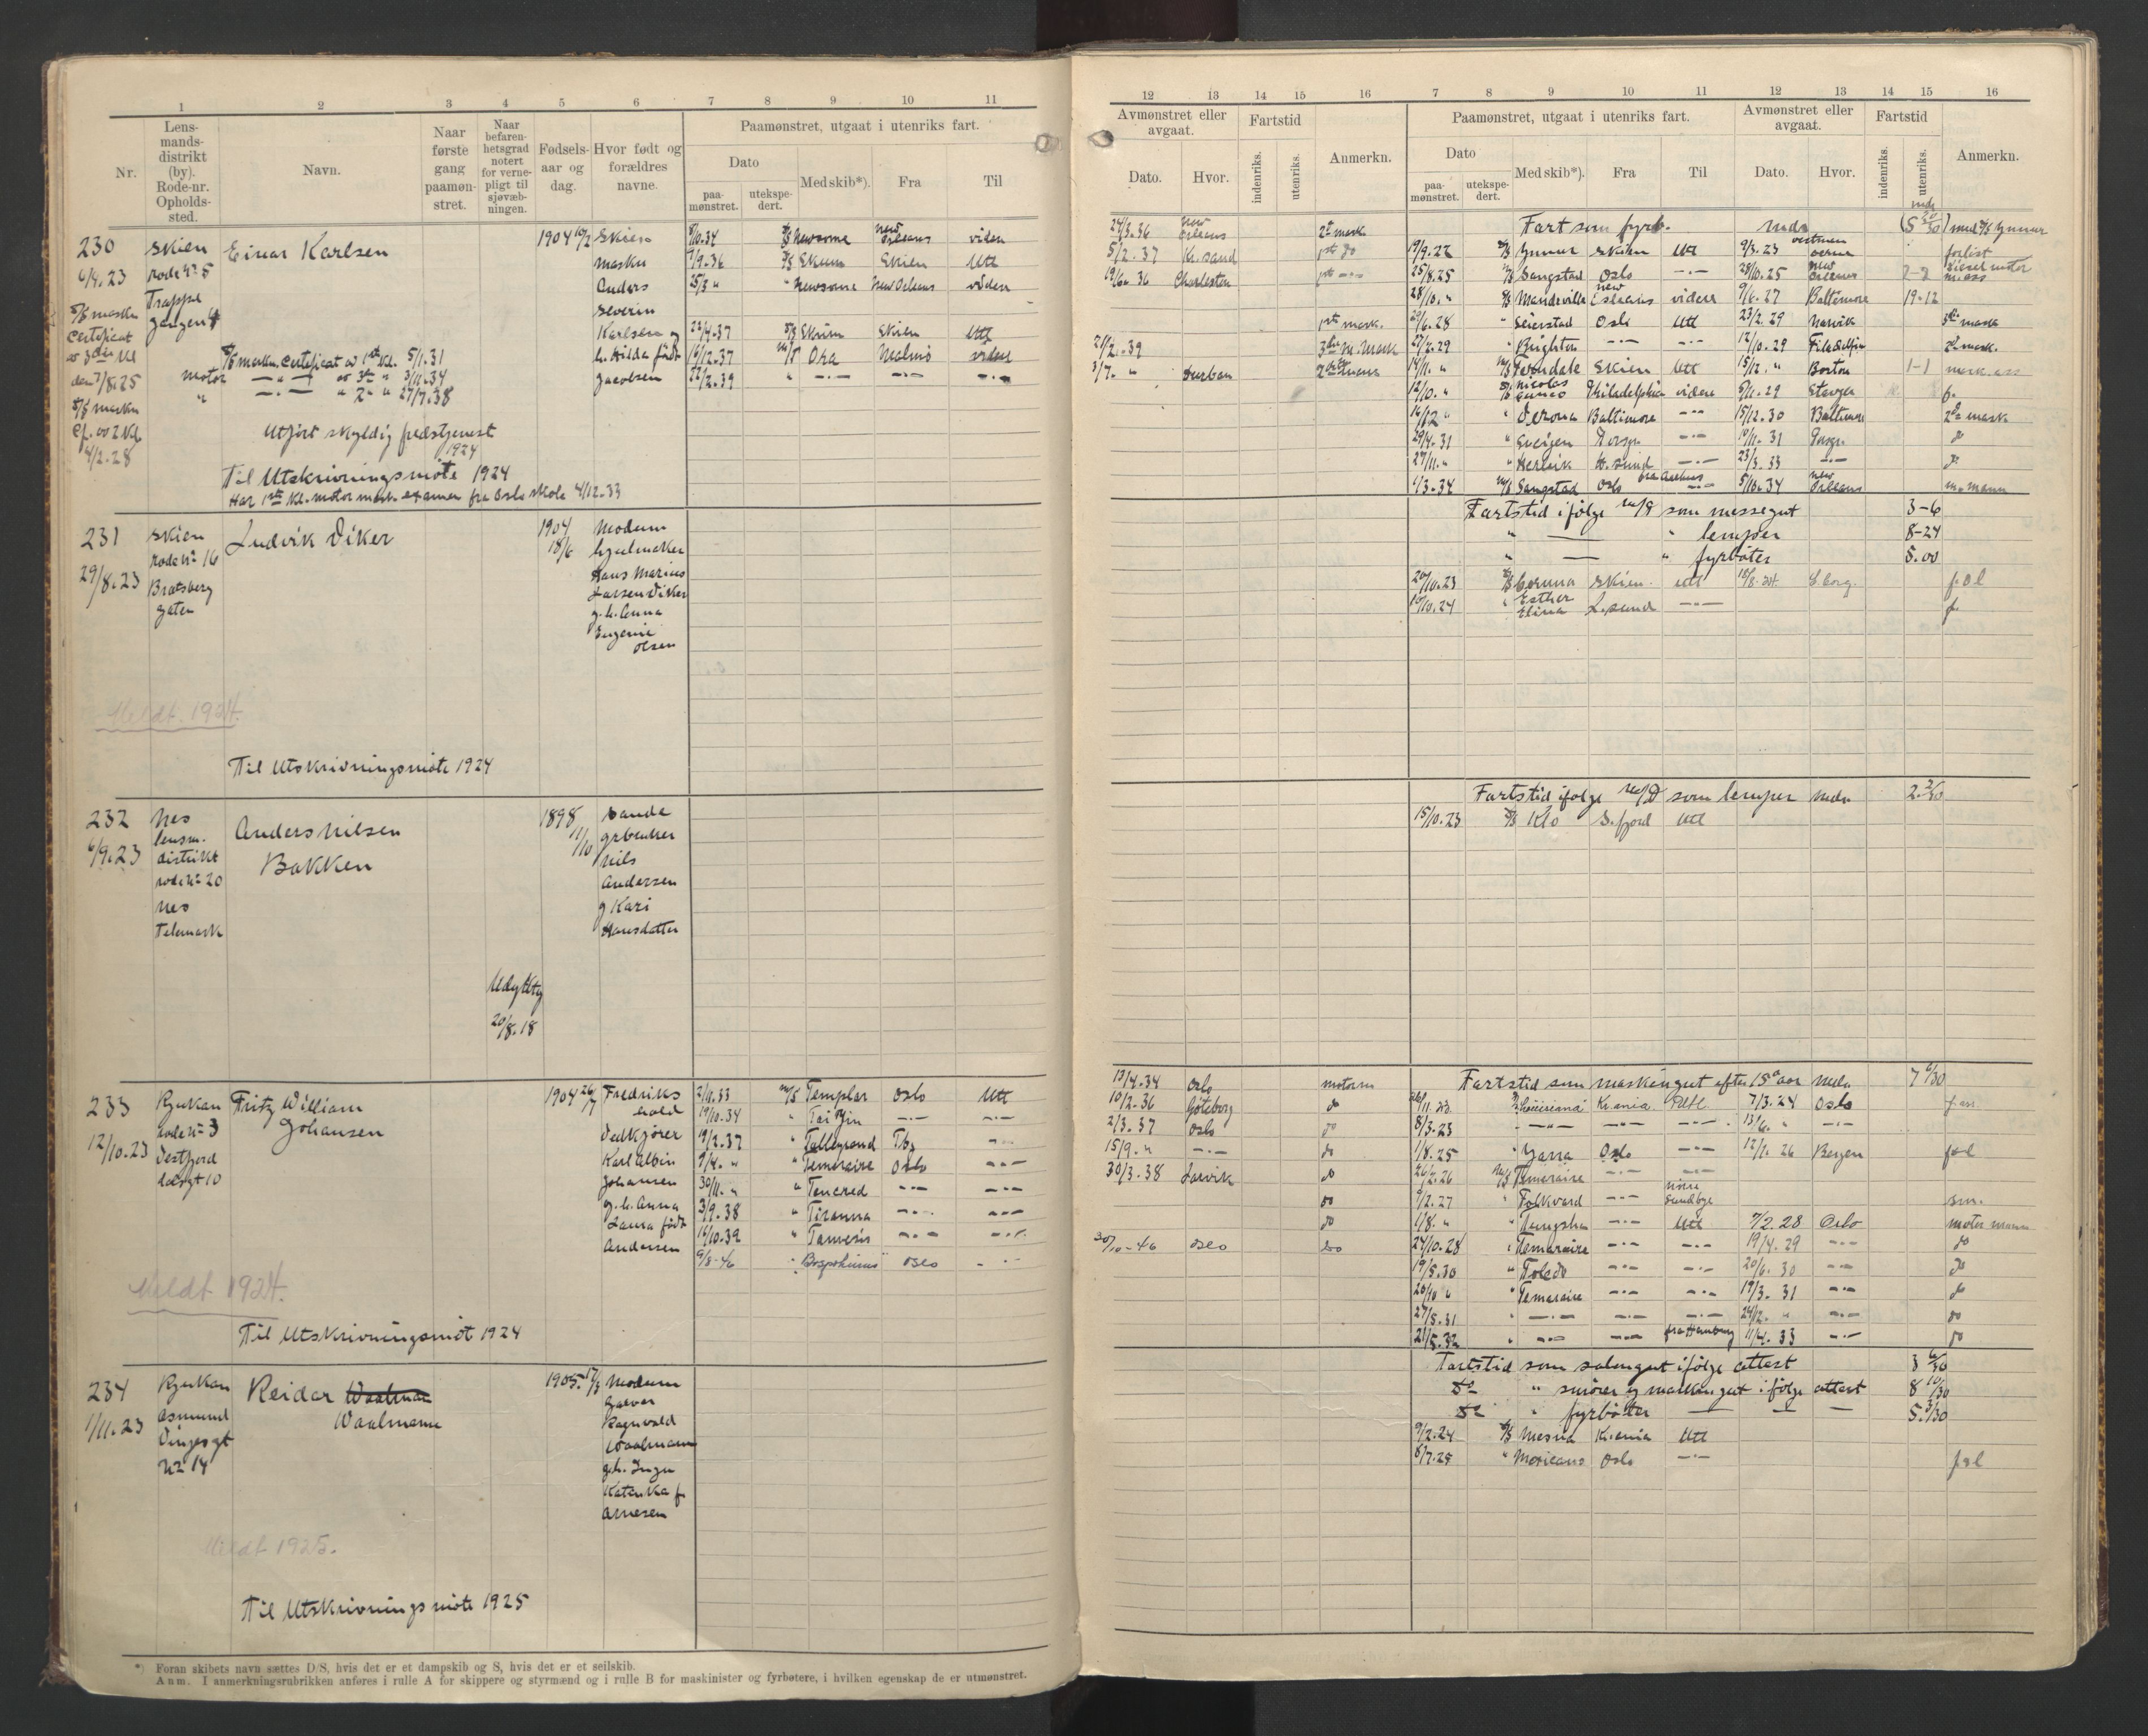 1 2 3 4 5 6 7 8 9 10 11
Nr.
Lens-
mands-
distrikt
(by).
Rode-nr.
Opholds-
sted.
Navn.
Naar
første
gang
paamøn-
stret.
Naar
befaren-
hetsgrad
notert
for verne-
pligt til
sjøvæb-
ningen.
Fødsels-
aar og
dag.
Hvor født og
forældres
navne.
Paamønstret, utgaat i utenriks fart.
Dato
paa-
mønstret.
utekspe-
dert.
Med skib*).
Fra
Til
230
6/9.23
Skien
rode No 5
Trappe
gangen 4
S/S maskn
Certificat
av 3die Kl
den 7/8.25
S/S maskn
Cf. av 2 Kl
4/2.28
Einar Karlsen
S/S maskn. Certificat av 1ste Kl. 5/1.31
motor —"— av 3die " 3/11.34
" —.— " 2n " 27/7.38
Utført skyldig fredstjenest
1924
Til Utskrivningsmöte 1924
Har 1ste Kl. motormask. examen fra Oslo skole 4/12.33
1904 10/2
Skien
maskn
Anders
Severin
Karlsen og
h. Hilda født
Jacobsen
8/10.34 S/S Newsome New Orleans viden
7/9.36 S/S Skum Skien Utl
25/3 " " Newsome New Orleans viden
23/4.37 S/S Skum Skien Utl
16/12.37 M/T Ora Malmö viden
22/2.39 " —.— —.— —.—
231
29/8.23
Skien
rode No 16
Bratsberg
gaten
Ludvik Viker
1904
18/6
Modum
hjulmaker
Hans Marius
Larsen Viker
g.h. Anna
Eugenie
Olsen
Meldt. 1924.
Til Utskrivningsmöte 1924
232
6/9.23
Nes
lensm.
distrikt
rode No 20
Nes
Telemark
Anders Nilsen
Bakken
1898
11/10
Sande
grbruker
Nils
Andersen
g Kari
Hansdatter
20/8.18
233
12/10.23
Rjukan
rode No 3
Vestfjord
dalsgt 10
Fritz William
Johansen
1904 26/7
Fredriks
hald
Vedkjører
Karl Albin
Johansen
g.h. Anna
Laura født
Andersen
2/11.33 M/S Templar Oslo Utl
19/10.34 " Tai Yin —.— —.—
19/2.37 " Talleyrand Tbg —.—
9/4. " " Temeraire Oslo —.—
30/11. " " Tancred —.— —.—
3/9.38 " Tiranna —.— —.—
16/10.39 " Tamesis —.— —.—
9/8-46 " Bosphorus Oslo —.—
Meldt 1924.
Til Utskrivningsmöt 1924
234
1/11.23
Rjukan
Åsmund
Vinjesgt
No 14
Reidar Waalman
Waalmann
1905. 17/3
Modum
Garver
Ragnvald
Waalmann
g.h. Inga
Katinka f.
Arnesen
Meldt 1925.
Til Utskrivningsmöte 1925
*) Foran skibets navn sættes D/S, hvis det er et dampskib og S, hvis det er et seilskib.
Anm. I anmerkningsrubrikken anføres i rulle A for skippere og styrmænd og i rulle B for maskinister og fyrbøtere, i hvilken egenskap de er utmønstret.
12 13 14 15 16 7 8 9 10 11 12 13 14 15 16
Avmønstret eller
avgaat.
Dato.
Hvor.
Fartstid
indenriks.
utenriks.
Anmerkn.
Paamønstret, utgaat i utenriks fart.
Dato
paa-
mønstret.
utekspe-
dert.
Med skib*).
Fra
Til
Avmønstret eller
avgaat.
Dato.
Hvor.
Fartstid
indenriks.
utenriks.
Anmerkn.
24/3.36 New Orleans 2n mask
5/2.37 Kr.sand 1ste do
19/6.36 Charleston 1ste —.—
1ste mask.
21/2.39 3die M. Mask
3/7. " Durban
Fart som fyrb. mndr (5 20/30) med S/S Gunnar
19/9.22 S/S Gunnar Skien Utl 9/3.23 forlist
25/8.25 M/S Sangstad Oslo —.— 28/10.25 New Orleans 2-2 Diesel motor m.ass
28/10. " S/S Mandeville New Orleans videre 9/6.27 Baltimore 19-12
29/6.28 " Seierstad Oslo Utl 23/2.29 Narvik 3die mask
27/2.29 " Brighton —.— —.— 12/10.29 Filadelfia 2n mask.
14/11. " M/S Ferndale Skien Utl 15/12. " Boston 1-1 mask.ass
12/10. " Philadelphia videre 9/11.29 f.
16/12 " " Verona Baltimore —.— 15/12.30 Baltimore 2n mask
29/4.31 " —.— 10/11.31 do
27/11. " " H.sund —.— 23/3.33 —.— do
1/3.34 M/S Sangstad Oslo —.— 5/10.34 New Orleans m.mann
Fartstid ifølge m/B som messegut 3-6
" — " lemper 8-24
" — " fyrbøter 5.00
20/10.23 S/S Corona Skien. utl 18/8.24. S.borg. f.o.l
10/10.24 " Esther Elina L.sund —.— f.
Fartstid ifølge m/B som lemper mdr 2. 2/30
15/10.23 S/S Klo S.fjord Utl
13/4.34 Oslo motorm
10/2.36 Göteborg do
2/3.37 Oslo do
15/9. " —.— do
30/3.38 Larvik do
do
do
30/10-46 Oslo do
Fartstid som maskingut efter 15 aar mdr 7 6/30
Kr.ania Utl. 7/3.24 Oslo
8/3.23 —"— —.— —.— 13/6. " —.—
1/8.25 " Yarra Oslo —.— 12/1.26 Bergen f.o.l
26/2.26 M/S Temeraire —.— —.—
9/2.27 " Folkvard —.— Nörre Sundbye sm.
1/8. " " Tungsha —.— Utl 7/2.28 Oslo motor mann
24/10.28 " Temeraire —.— —.— 19/4.29 —.— do
19/5.30 " Toledo —.— —.— 20/6.30 —.— do
20/10 " " Temeraire —.— —.— 19/3.31 —.— do
27/5.31 " —.— —.— —.— 24/2. " —.— do
21/5.32 " —.— —.— fra Hamburg 11/4.33 —.— do
Fartstid som salongut ifølge attest 3 6/30
Do " smører og maskingut ifølge attest 8 10/30
Do " fyrbøter — — — 5. 3/30
9/2.24 S/S Mesna Kr.ania Utl
8/7.25 " Mexicano Oslo —.— f.o.l